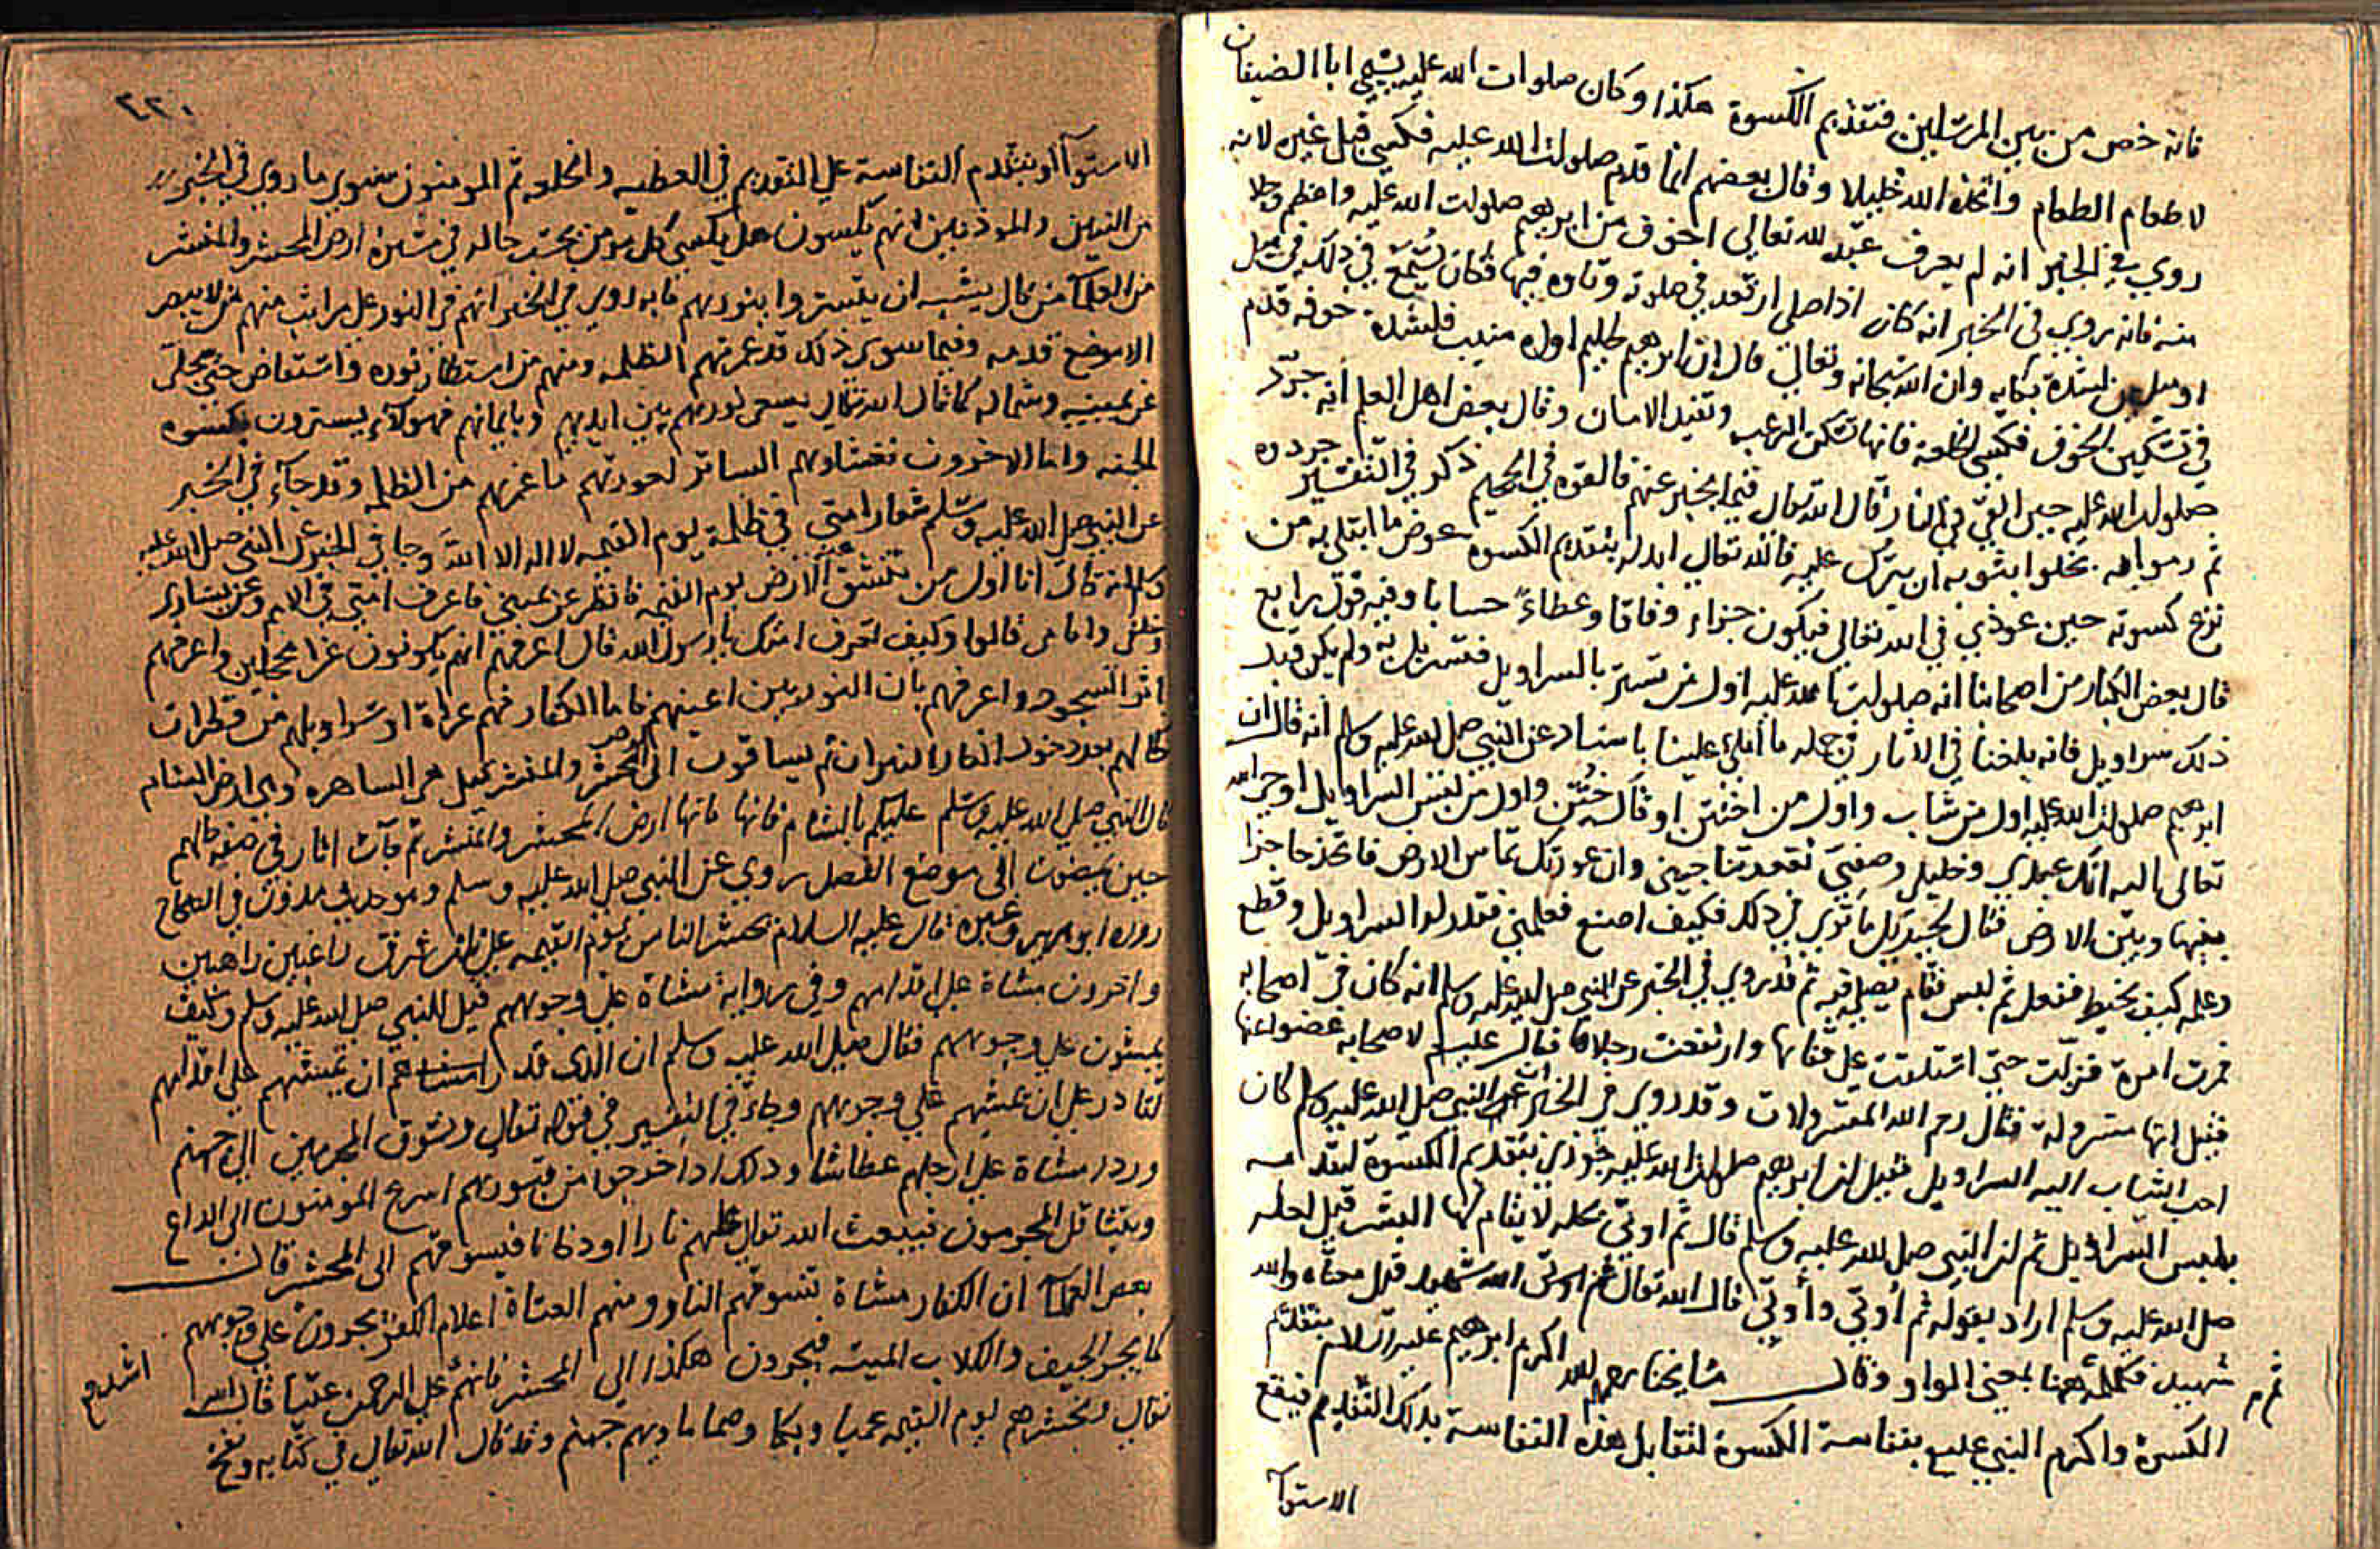 فانه خص من بين المرسلين فتقديم الكسوة هكذا وكان صلوات الله عليه يسمي ابا الضيفان
لاطعام الطعام واتخذه الله خليلا وقال بعضهم انما قدم صلوات الله عليه فكسي قبل غيره لانه
روي في الخبر انه لم يعرف عبد لله تعالي اخوف من ابرهيم صلوات الله عليه واعظم وجلا
منه فانه روي في الخبر انه كان اذا صلي ارتعد في صلوته وتاوه فيها فكان يسمع في ذلك في ميل
او ميلين لشدة بكايه وان الله سبحانه وتعالي قال ان ابرهيم لحليم اواه منيب فلشدة خوفه قدم
في تسكين الخوف فكسي الخلعة فانها تسكن الرعب وتفيد الامان وقال بعض اهل العلم انه جرد
صلوات الله عليه حين القي في النار قال الله تعال فيما يخبر عنهم فالقوه في الجحيم ذكر في التفسير جردوه
ثم رموا به بخلوا بثوبه ان يترك عليه فالله تعالي ابدله بتقديم الكسوه عوض ما ابتلي به من
نزع كسوته حين عوذي في الله تعالي فيكون جزاء وفاقا وعطاء حسابا وفيه قول رابع
قال بعض الكبار من اصحابنا انه صلوات الله عليه اول من تستر بالسراويل فتسربل به ولم يكن قبل
ذلك سراويل فانه بلغنا في الاثار في جمله ما املي علينا باسناد عن النبي صلي الله عليه وسلم انه قال ان
ابرهيم صلوات الله عليه اول من شاب واول من اختتن او قال ختن واول من لبس السراويل اوحي الله
تعالي اليه انك عبدي وخليلي وصفيي تقعد تناجيني وان عورتك تماس الارض فاتخذ حاجزا
بينها وبين الارض فقال لجبريل ما تري في ذلك فكيف اصنع فعلمني فقدر له السراويل وقطع
وعلمه كيف يخيط ففعل ثم لبس فقام يصلي فيه ثم قد روي في الخبر عن النبي صلي الله عليه وسلم انه كان في اصحابه
فمرت امراة فزلت حتي استلقت علي قفاها وارتفعت رجلاها فقال عليه لاصحابه غضوا عنها
فقيل انها متسرولة فقال رحم الله المتسرولات وقد روي في الخبر عن النبي صلي الله عليه وسلم كان
احب الثياب اليه السراويل فقيل ان ابرهيم صلوات الله عليه جوزي بتقديم الكسوة لتقدمه
بلبس السراويل ثم ان النبي صلي الله عليه وسلم قال ثم اوتي بحله لا يقام لها البشر قيل لعله
صلي الله عليه وسلم اراد بقوله ثم أوتي وأوتي قال الله تعالي ثم الله شهيد قيل معناه والله
شهيد فكلمة ثم ههنا بمعني الواو وقال مشايخنا رحمهم الله اكرم ابرهيم عليه السلام بتقديم
الكسوة واكرم النبي عليه بنفاسة الكسوة لتقابل هذه النفاسة بذلك التقديم فيقع
الاستوآ
٢٢٠
الاستوآ او يتقدم النفاسة علي التقديم في العطيه والخلعه ثم المومنون سوي ما روي في الخبر
من النبيين والموذنين انهم يكسون هل يكسي كل مومن بحسب حاله في مسيره ارض المحشر والمنشر
من العلمآ من قال يشبه ان يتستروا بنورهم فانه روي في الخبر انهم في النور علي مراتب منهم من لا يبصر
الا موضع قدمه وفيما سوي ذلك قد غمرتهم الظلمه ومنهم من استطار نوره واستفاض حتي تجلي
عن يمينه وشماله كما قال الله تعالي يسعي نورهم بين ايديهم وبايمانهم فهولاء يسترون بكسوه
الجنه واما الاخرون فغشاوهم الساتر لعورتهم ما غمرهم من الظلمه وقد جآء في الخبر
عن النبي صلي الله عليه وسلم شعار امتي في ظلمة يوم القيمه لا اله الا الله وجا في الخبر عن النبي صلي الله عليه
وسلم انه قال انا اول من تنشق عنه الارض يوم القيمه فانظر عن يميني فاعرف امتي في الامم وعن يساري
وخلفي وامامي قالوا وكيف تعرف امتك يا رسول الله قال اعرفهم انهم يكونون غرا محجلين واعرفهم
اثر السجود واعرفهم بان النور بين اعينهم فاما الكفار فهم عراة او سراويلهم من قطران
كالهم بعد دخول الكفار النيران ثم يساقون الي ارض المحشر والمنشر قيل هي الساهره وهي ارض الشام
قال النبي صلي الله عليه وسلم عليكم بالشام فانها فانها ارض المحشر والمنشر ثم جآت اثار في صفه حالهم
حين يمضون الي موضع الفصل روي عن النبي صلي الله عليه وسلم وهو حديث مدون في الصحاح
رواه ابو هريره وغيره قال عليه السلام يحشر الناس يوم القيمه علي ثلث فرق راغبين راهبين
واخرون مشاة علي اقدامهم وفي رواية مشاة علي وجوههم قيل للنبي صلي الله عليه وسلم وكيف
يمشون علي وجوههم فقال صلي الله عليه وسلم ان الذي قدر ان يمشيهم علي اقدامهم
لقادر علي ان يمشيهم علي وجوههم وجآء في التفسير في قوله تعالي ونسوق المجرمين الي جهنم
وردا مشاة علي ارجلهم عطاشا وذلك اذا خرجوا من قبورهم اسرع المومنون الي الداع
ويتثاقل المجرمون فيبعث الله تعالي عليهم نارا او دخانا فيسوقهم الي المحشر قال
بعض العلمآ ان الكفار مشاة تسوقهم النار ومنهم العتاة اعلام الكفر يجرون علي وجوههم
كما يجر الجيف والكلاب الميته فيجرون هكذا الي المحشر علي الرحمن عتيا قال الله
اشدهم
تعالي ونحشرهم يوم القيمه عميا وبكما وصما ماويهم جهنم وقد قال الله تعالي في كتابه ونفخ